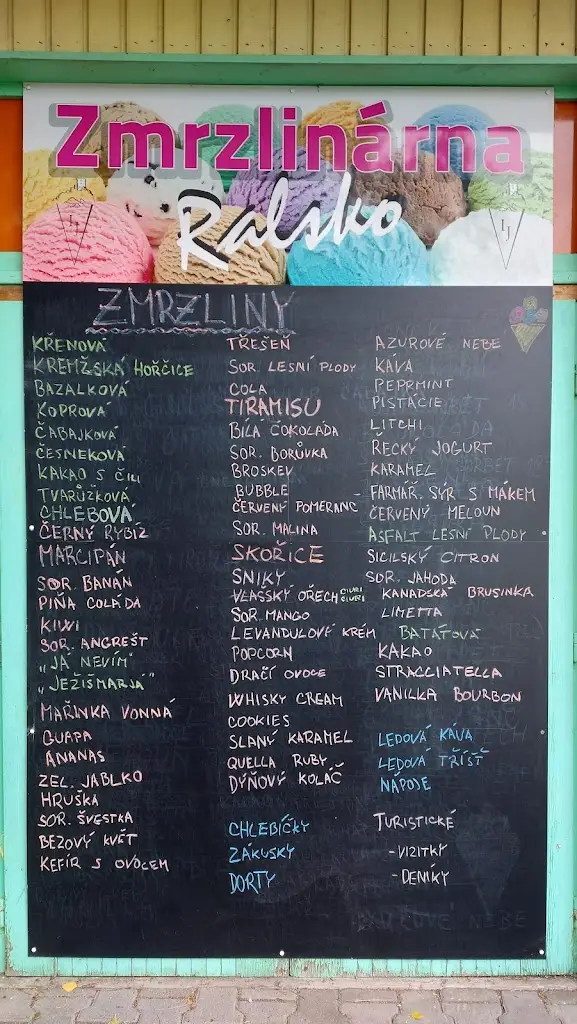 Zmrzlinárna
Ralsko
ZMRZLINY
KŘENOVÁ
KREMŽSKÁ HOŘČICE
BAZALKOVÁ
KOPROVÁ
ČABAJKOVÁ
ČESNEKOVÁ
KAKAO S ČILI
TVARŮŽKOVÁ
CHLEBOVÁ
ČERNÝ RYBÍZ
MARCIPÁN
SOR. BANÁN
PIŇA COLÁDA
KIWI
SOR. ANGREŠT
„JÁ NEVÍM"
„JEŽIŠMARJÁ"
MAŘINKA VONNÁ
GUAPA
ANANAS
ZEL. JABLKO
HRUŠKA
SOR. ŠVESTKA
BEZOVÝ KVĚT
KEFÍR S OVOCEM
TŘEŠEŇ
SOR LESNÍ PLODY
COLA
TIRAMISU
BÍLÁ ČOKOLÁDA
SOR. BORŮVKA
BROSKEV
BUBBLE
ČERVENÝ POMERANČ
SOR. MALINA
SKOŘICE
SNIKY
VLAŠSKÝ OŘECH
SOR. MANGO
LEVANDULOVÉ KRÉM
POPCORN
DRAČÍ OVOCE
WHISKY CREAM
COOKIES
SLANÝ KARAMEL
QUELLA RUBY
DÝŇOVÝ KOLÁČ
CHLEBÍČKY
ZÁKUSKY
DORTY
AZUROVÉ NEBE
KÁVA
PEPRMINT
PISTÁCIE
LITCHI
ŘECKÝ JOGURT
KARAMEL
- FARMÁŘ. SÝR S MÁKEM
ČERVENÝ MELOUN
ASFALT LESNÍ PLODY
SICILSKÝ CITRON
SOR. JAHODA
KANADSKÁ BRUSINKA
LIMETTA
BATÁTOVÁ
KAKAO
STRACCIATELLA
VANILKA BOURBON
LEDOVÁ KÁVA
LEDOVÁ TŘÍŠŤ
NÁPOJE
TURISTICKÉ
- VIZITKY
- DENÍKY